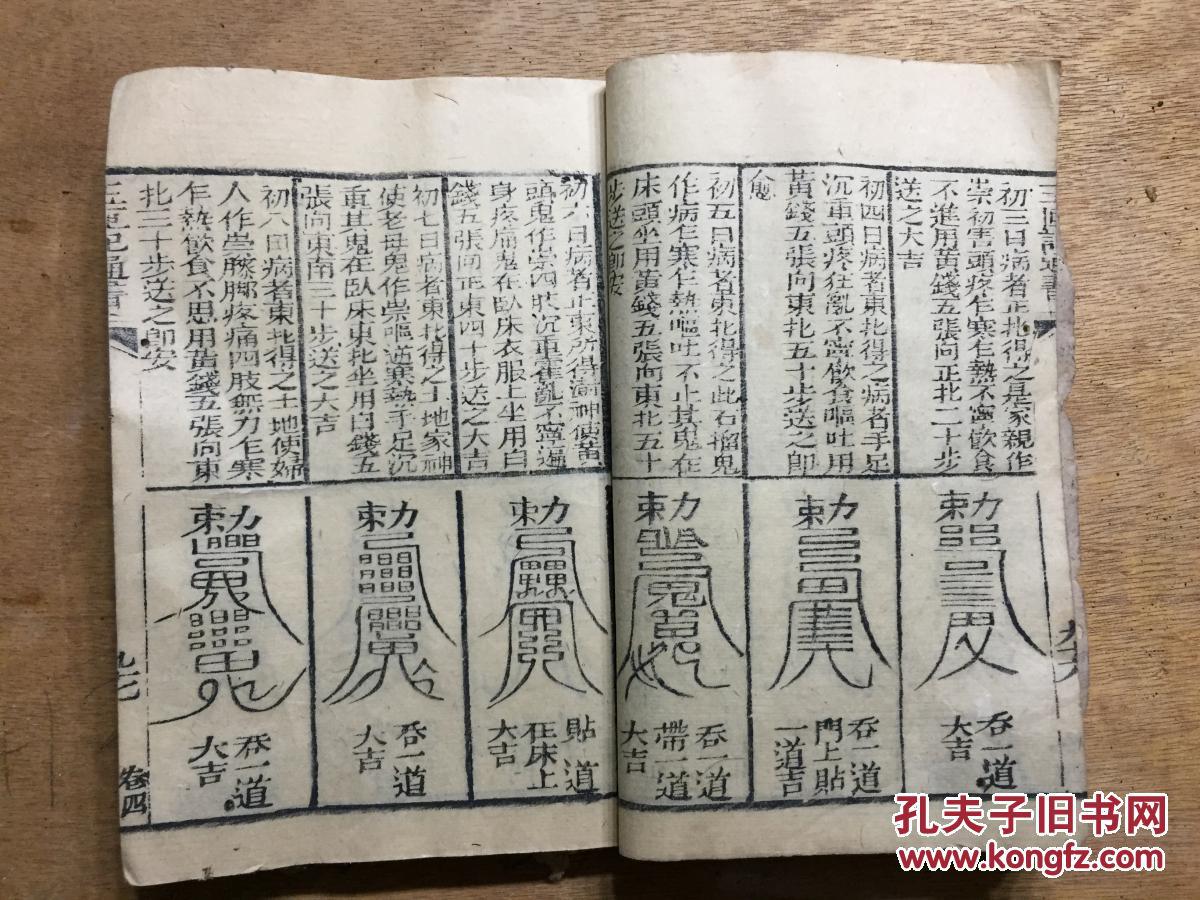 初三日病者正北得之是家親作
祟初害頭疼乍寒乍熱不寧飲食
不進用黃錢五張向正北二十步
送之大吉
初四日病者東北得之病者手足
沉重頭疼狂亂不寧飲食嘔吐用
黃錢五張向東北五十步送之即
愈
初五日病者東北得之此石榴鬼
作病乍寒乍熱嘔吐不止其鬼在
床頭坐用黃錢五張向東北五十
步送之即安
勅
吞一道
大吉
勅
吞一道
門上貼
一道吉
勅
吞一道
帶一道
大吉
初六日病者正東所得樹神使黃
頭鬼作祟四肢沉重霍亂不寧遍
身疼痛鬼在臥床衣服上坐用白
錢五張向正東四十步送之大吉
初七日病者東北得之土地家神
使老母鬼作祟嘔逆寒熱手足沉
重其鬼在臥床東北坐用白錢五
張向東南三十步送之大吉
初八日病者東北得之土地使婦
人作祟膝腳疼痛四肢無力乍寒
乍熱飲食不思用黃錢五張向東
北三十步送之即安
勅
貼一道
在床上
大吉
勅
吞一道
大吉
勅
吞一道
大吉
九七
卷四
孔夫子旧书网
www.kongfz.com